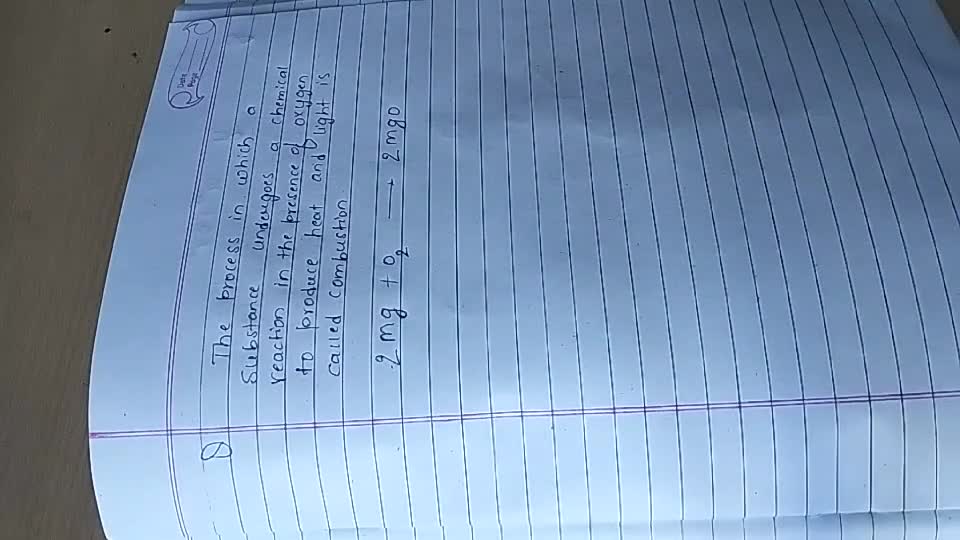 Date
Page
1)
The process in which a
substance undergoes a chemical
reaction in the presence of oxygen
to produce heat and light is
called combustion
2 mg + O2 → 2 mgo